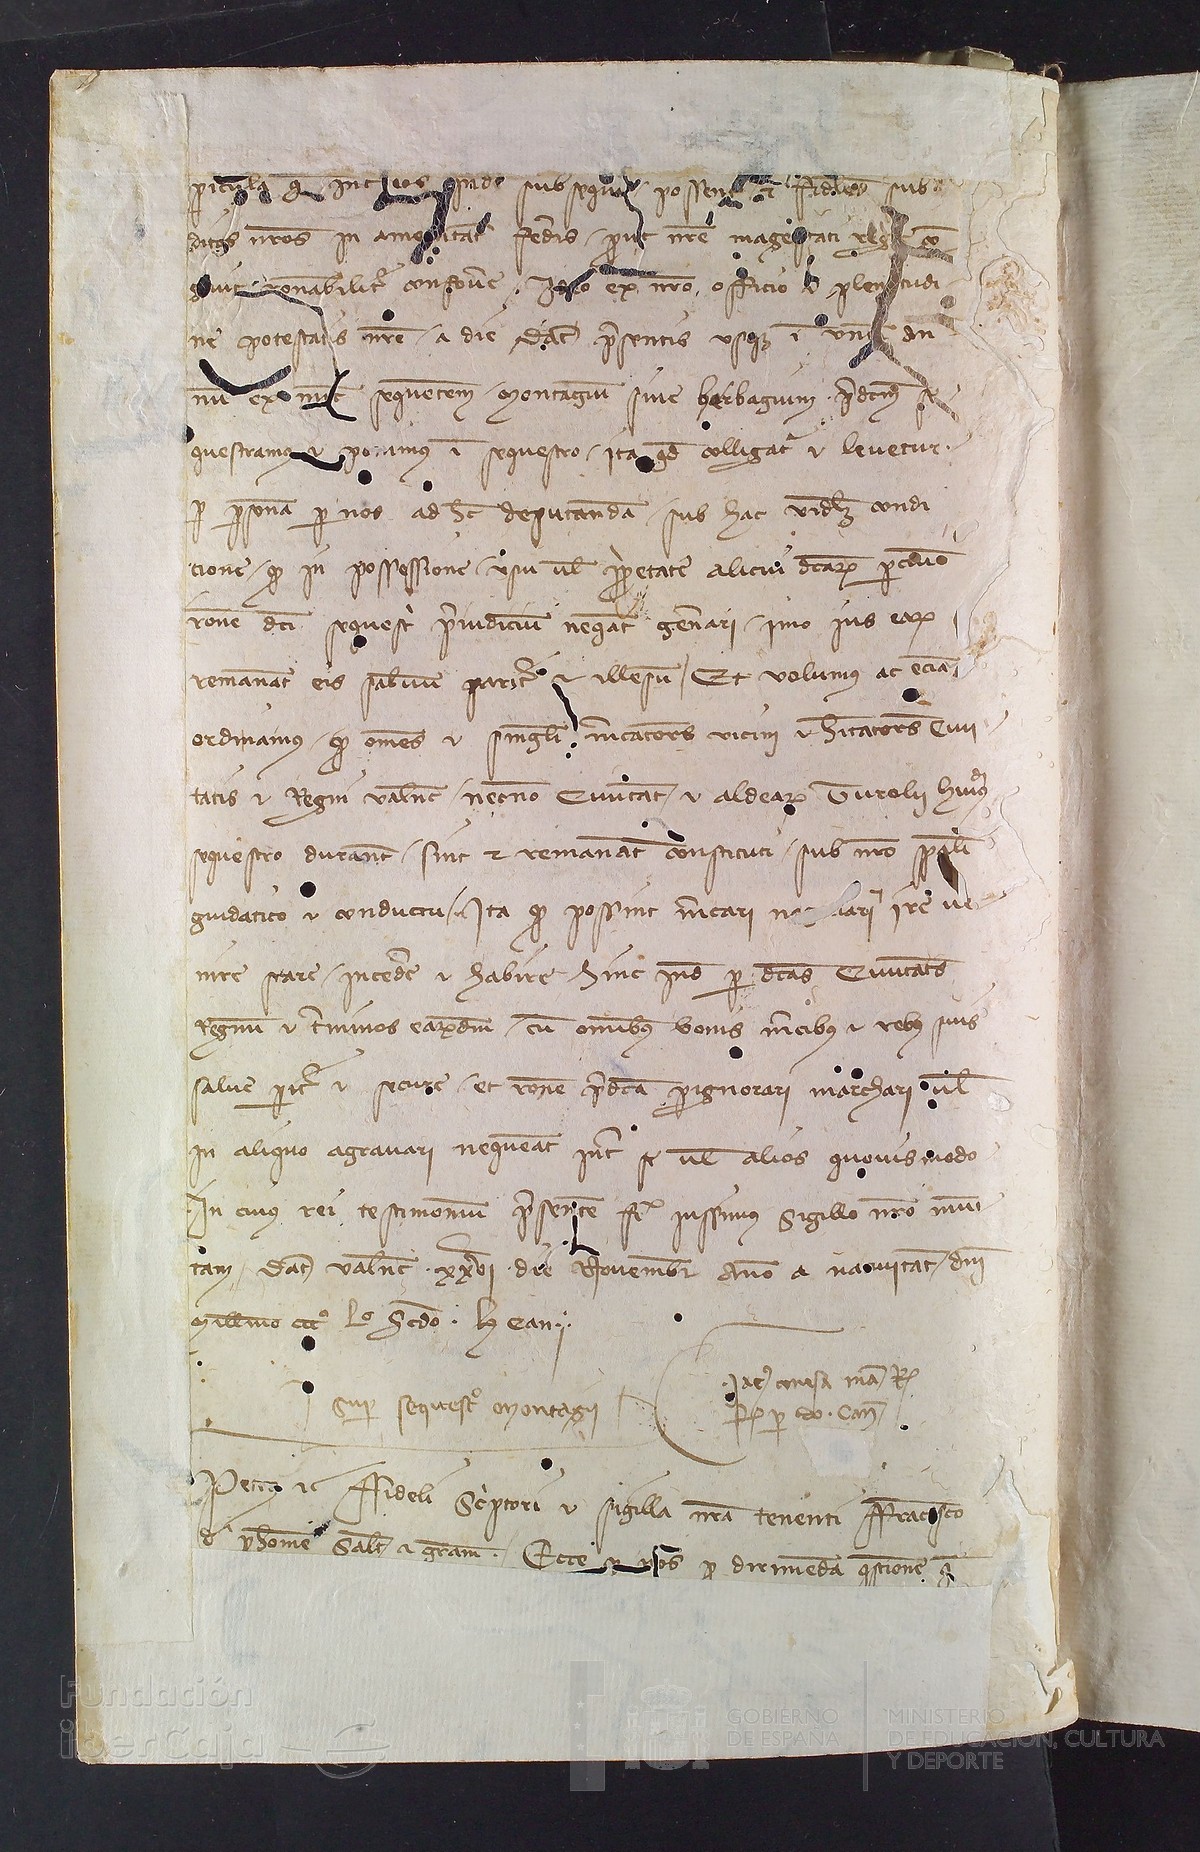 pericula que int eos inde subsequi possent et fideles sub
ditos nros in amenitate federis prout nre magestati regie con
gruit ronabiliter confovere Ideo ex nro officio et plenitudi
ne potestatis nre a die dat presentis usque in unum an
num ex nunc sequentem montagium sive herbagium predcm se
questramus et ponimus in sequestro ita quod colligatur et levetur
per personam per nos ad hoc deputandam sub hac videlz condi
cione quod in possessione usu vel proprietate alicui dcarum
rone dci sequestri preiudicium nequeat generari imo ius earum
remaneat eis salvum pariter et illesum Et volumus ac eciam
ordinamus quod omnes et singuli mercatores vicini et habitatores Civi
tatis et Regni Valnc necnon Civitat et aldearum Turolii huiusmodi
sequestro durante sint et remaneant constituti sub nro speciali
guidatico et conductu Ita quod possint mercari ire ve
nire stare incedere et habire hinc inde per dcas Civitates
Regnum et terminos earumdem cum omnibus bonis mercibus et rebus suis
salve pariter et secure et rone predca pignorari marchari vel
in aliquo agravari nequeant inter se vel alios quovis modo
In cuius rei testimonium presentem fieri iussimus Sigillo nro muni
tam Dat Valnc xxvi die Novembr Anno a nativitate dni
Millmo ccc Lo Scdo
Super sequestro montagii
Petrus etc Fideli Scriptori et sigilla nra tenenti Francisco
Saltm et gram Ecce quod nos pro dirimenda questione
Fundación
iberCaja
GOBIERNO
DE ESPAÑA
MINISTERIO
DE EDUCACIÓN, CULTURA
Y DEPORTE